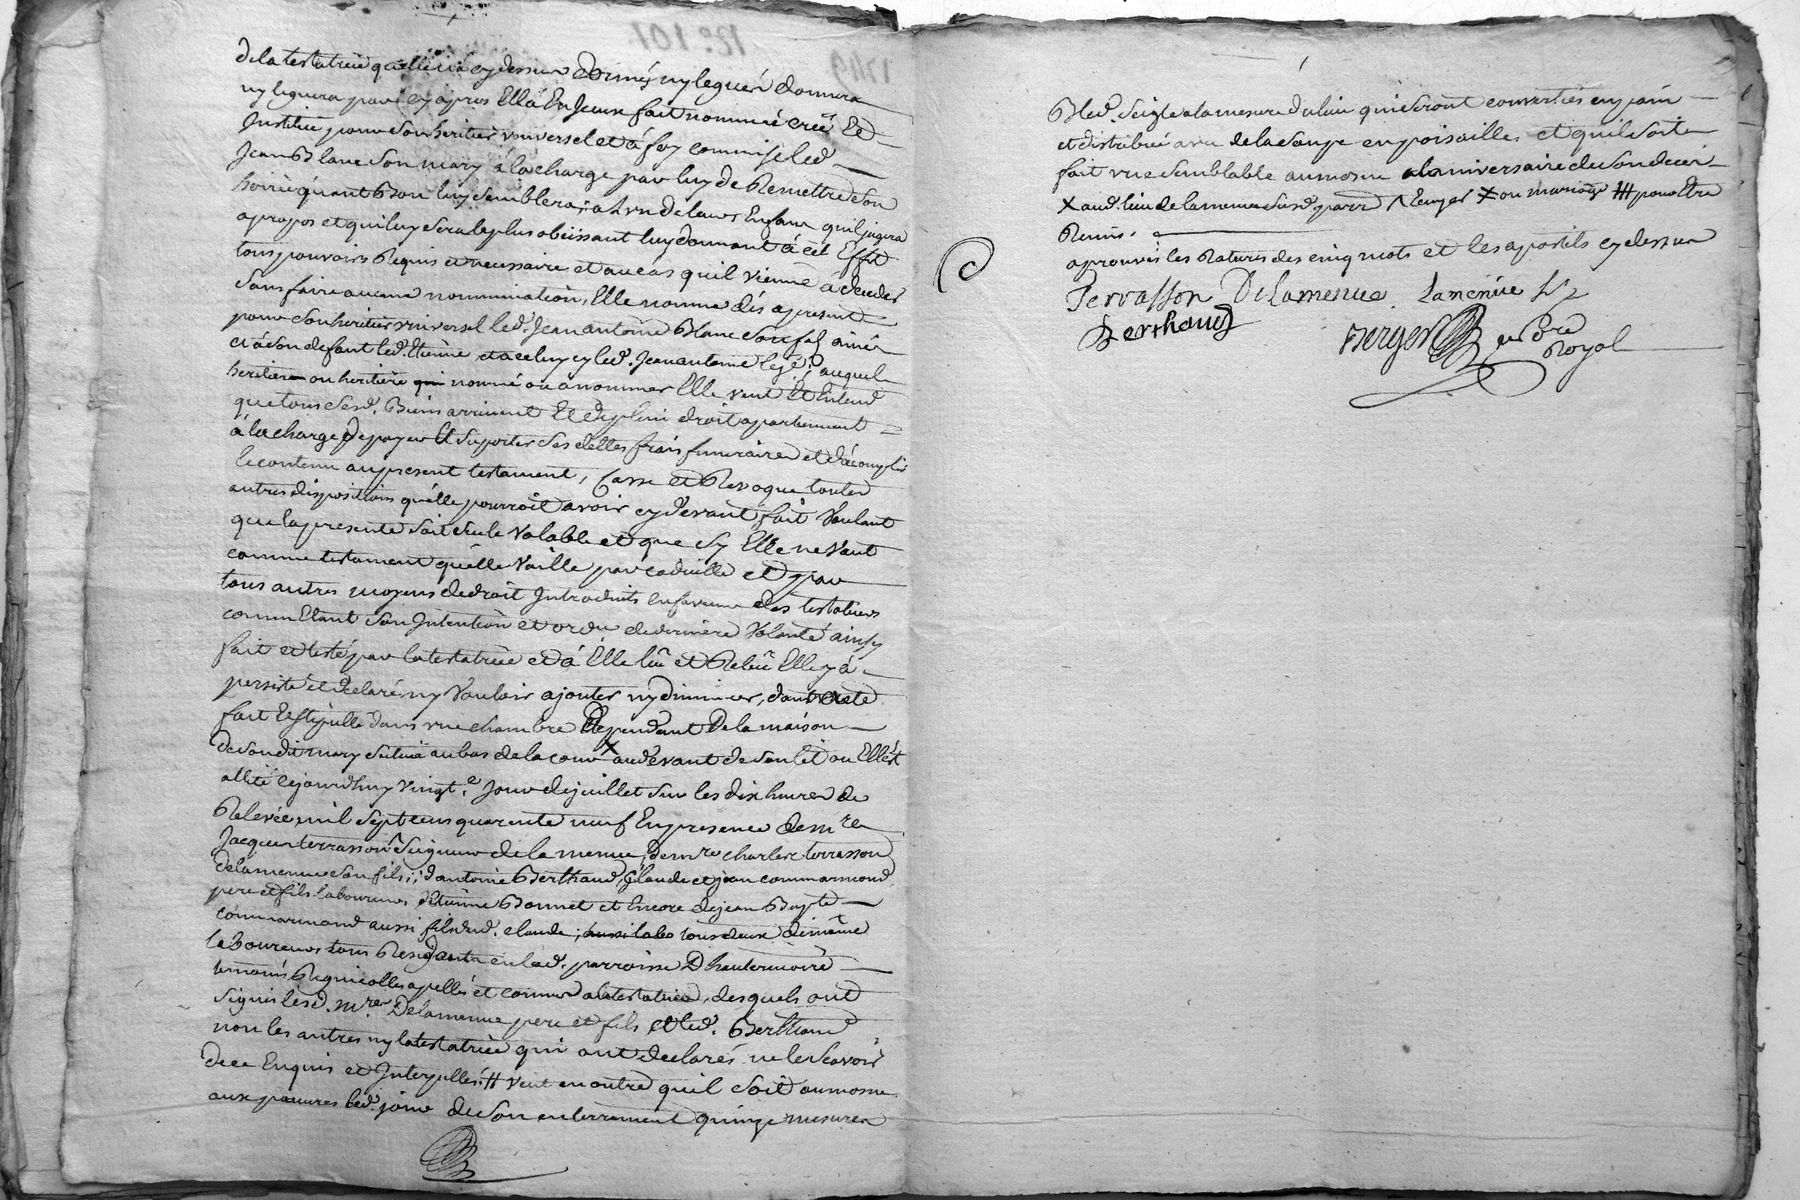 de la testatrice quelle n'a cy dessus donné, ny legué donnera
ny leguera par cy apres Ella En Jceux fait nommé créé Et
Jnstitué pour son heritier vniversel et á foy commise led.
Jean Blanc son mary á la charge par luy de Remettre son
hoirie quant Bon luy semblera, a L'vn de leurs Enfans quil jugera
apropos et qui luy sera le plus obeissant luy donnant á cet Effet
tous pouvoirs Requis et necessaire et au cas quil vienne á deceder
sans faire aucune nommination, Elle nomme dés apresent
pour son heritier vniversel led. Jean antoine Blanc son fils ainé
et á son defaut led. Etienne, et a celuy cy led. Jean antoine le jé. auquel
heritier ou heritiere nommé ou a nommer Elle veut Et Entend
que tous sesd. Biens arrivent Et de plein droit apartiennent
á la charge de payer Et suporter ses dettes frais funeraires et d'acomplir
le contenu au present testament, Casse et Revoque toutes
autres dispositions qu'elle pourroit avoir cy devant fait Voulant
que la presente soit seule valable et que sy Elle ne vaut
comme testament qu'elle vaille par codicille et par
tous autres moyens de droit Jntroduits en faveur des testateurs
comme Etant son Jntention et ordce de derniere Volonté ainsy
fait et testé par la testatrice et á Elle lüe et Relüe Elle y á
persisté et declaré n'y Vouloir ajouter ny diminuer, dont acte
fait Et stipullé dans vne chambre Dependant De la maison
de son dit mary située au bas de la cour X au devant de son lit ou Ell'est
alitée cejourdhuy vingt.e Jour de juillet sur les dix heures de
Relevée mil sept cens quarente neuf En presence de mre
Jacques terrasson Seigneur de la menue, de mre charles terrasson
delamenue son fils; d'antoine Berthaud, Glaude et jean commarmond
pere et fils laboureurs d'Etienne Bonnet et Encore de jean Bapte
commarmond aussi fils dud. claude; tous deux de même
laboureurs tous Residants en lad. parroisse D'hauterivoire
temoins Regnicolles apellés et connus a la testatrice, desquels ont
signés lesd. mres Delamenue pere et fils, et led. Berthaud
non les autres ny la testatrice qui ont declarés ne le scavoir
de ce Enquis et Jnterpellés. # Veut en outre quil soit aumosne
aux pauvres led. jour de son enterrement quinze mesures
Bled. seigle a la mesure du lieu qui seront converties en pain
et distribué avec de la soupe en poisaille, et quil soit
fait vne semblable aumosne a laniversaire de son deces
X aud. lieu de lamenue susd. parr. Λ Leuger X ou mariage # pour Etre
Remis.
aprouvés les Ratures des cinq mots et les apostils cy dessus
Terrasson Delamenue. Lamenüe fils
Berthaud
Berger nore
Royal